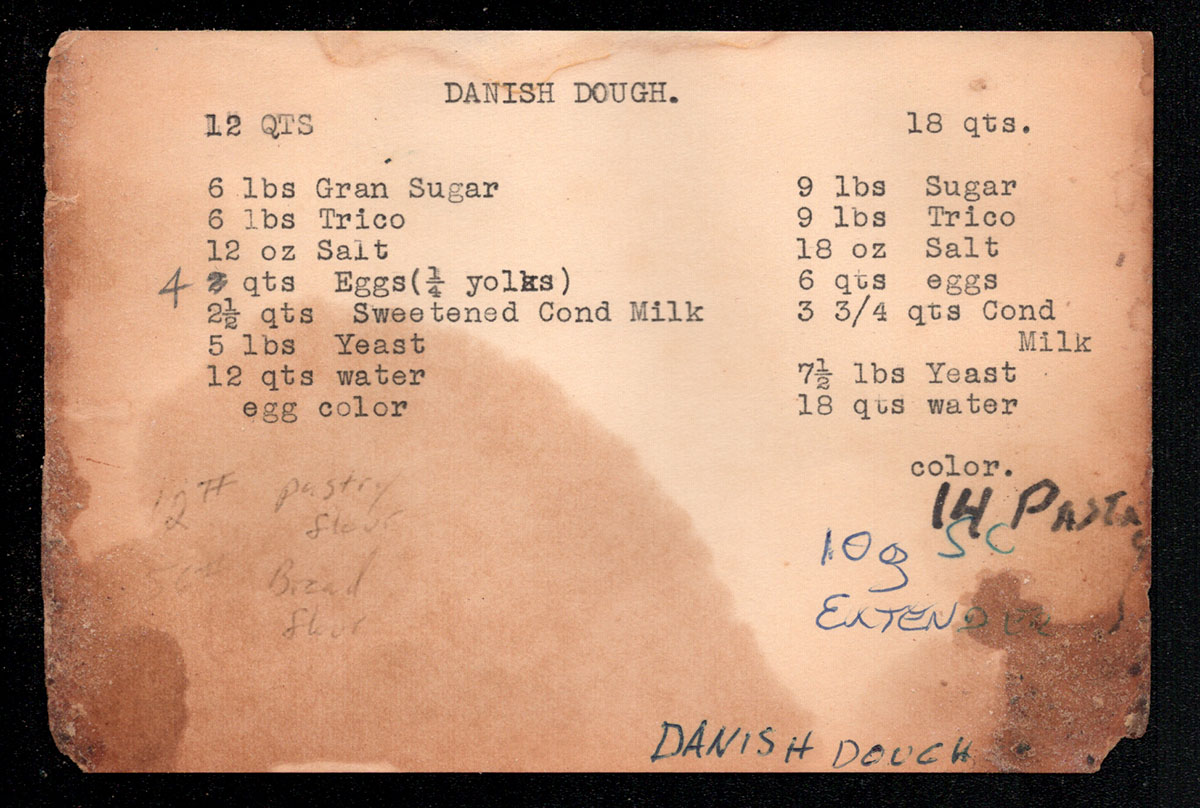 DANISH DOUGH.
12 QTS
6 lbs Gran Sugar
6 lbs Trico
12 oz Salt
4 qts Eggs(¼ yolks)
2½ qts Sweetened Cond Milk
5 lbs Yeast
12 qts water
egg color
12# pastry
flour
Bread
flour
18 qts.
9 lbs Sugar
9 lbs Trico
18 oz Salt
6 qts eggs
3 3/4 qts Cond
Milk
7½ lbs Yeast
18 qts water
color.
14 PASTRY
10g SC
EXTENDER
DANISH DOUGH